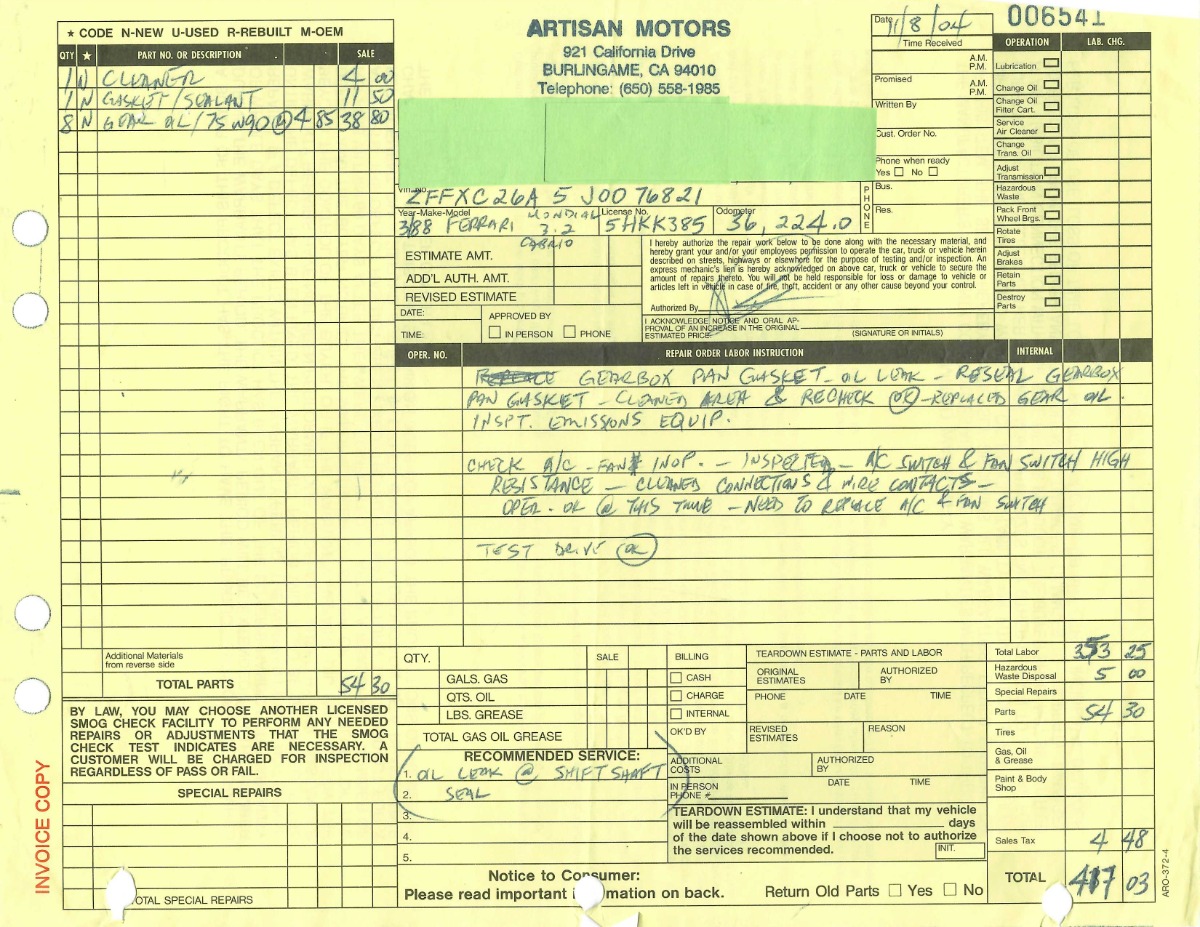 ★ CODE N-NEW U-USED R-REBUILT M-OEM
QTY ★ PART NO. OR DESCRIPTION SALE
1 N CLEANER 4 00
1 N GASKET/SEALANT 11 50
8 N GEAR OIL/75W90 @ 4 85 38 80
Additional Materials
from reverse side
TOTAL PARTS 54 30
BY LAW, YOU MAY CHOOSE ANOTHER LICENSED
SMOG CHECK FACILITY TO PERFORM ANY NEEDED
REPAIRS OR ADJUSTMENTS THAT THE SMOG
CHECK TEST INDICATES ARE NECESSARY. A
CUSTOMER WILL BE CHARGED FOR INSPECTION
REGARDLESS OF PASS OR FAIL.
SPECIAL REPAIRS
TOTAL SPECIAL REPAIRS
INVOICE COPY
ARTISAN MOTORS
921 California Drive
BURLINGAME, CA 94010
Telephone: (650) 558-1985
Date 11/8/04
Time Received
A.M.
P.M.
Promised
A.M.
P.M.
Written By
Cust. Order No.
Phone when ready
Yes No
Bus.
Res.
PHONE
006541
OPERATION LAB. CHG.
Lubrication
Change Oil
Change Oil
Filter Cart.
Service
Air Cleaner
Change
Trans. Oil
Adjust
Transmission
Hazardous
Waste
Pack Front
Wheel Brgs.
Rotate
Tires
Adjust
Brakes
Retain
Parts
Destroy
Parts
VIN No.
ZFFXC26A 5 J00 76821
Year-Make-Model License No. Odometer
3/88 FERRARI MONDIAL 3.2 CABRIO 5HKK385 36,224.0
ESTIMATE AMT.
ADD'L AUTH. AMT.
REVISED ESTIMATE
DATE:
TIME:
APPROVED BY
IN PERSON PHONE
I hereby authorize the repair work below to be done along with the necessary material, and
hereby grant your and/or your employees permission to operate the car, truck or vehicle herein
described on streets, highways or elsewhere for the purpose of testing and/or inspection. An
express mechanic's lien is hereby acknowledged on above car, truck or vehicle to secure the
amount of repairs thereto. You will not be held responsible for loss or damage to vehicle or
articles left in vehicle in case of fire, theft, accident or any other cause beyond your control.
Authorized By
I ACKNOWLEDGE NOTICE AND ORAL AP-
PROVAL OF AN INCREASE IN THE ORIGINAL
ESTIMATED PRICE.
(SIGNATURE OR INITIALS)
OPER. NO. REPAIR ORDER LABOR INSTRUCTION INTERNAL
REPLACE GEARBOX PAN GASKET - OIL LEAK - RESEAL GEARBOX
PAN GASKET - CLEANED AREA & RECHECK OK - REPLACED GEAR OIL.
INSPT. EMISSIONS EQUIP.
CHECK A/C - FAN INOP. - INSPECTED - A/C SWITCH & FAN SWITCH HIGH
RESISTANCE - CLEANED CONNECTIONS & WIRE CONTACTS -
OPER. OK @ THIS TIME - NEED TO REPLACE A/C & FAN SWITCH
TEST DRIVE OK
QTY. SALE
GALS. GAS
QTS. OIL
LBS. GREASE
TOTAL GAS OIL GREASE
BILLING
CASH
CHARGE
INTERNAL
OK'D BY
RECOMMENDED SERVICE:
1. OIL LEAK @ SHIFT SHAFT
2. SEAL
3.
4.
5.
TEARDOWN ESTIMATE - PARTS AND LABOR
ORIGINAL
ESTIMATES
AUTHORIZED
BY
PHONE DATE TIME
REVISED
ESTIMATES
REASON
ADDITIONAL
COSTS
AUTHORIZED
BY
IN PERSON
PHONE #
DATE TIME
TEARDOWN ESTIMATE: I understand that my vehicle
will be reassembled within days
of the date shown above if I choose not to authorize
the services recommended.
INIT.
Notice to Consumer:
Please read important information on back.
Return Old Parts Yes No
Total Labor 353 25
Hazardous
Waste Disposal 5 00
Special Repairs
Parts 54 30
Tires
Gas, Oil
& Grease
Paint & Body
Shop
Sales Tax 4 48
TOTAL 417 03
ARO-372-4